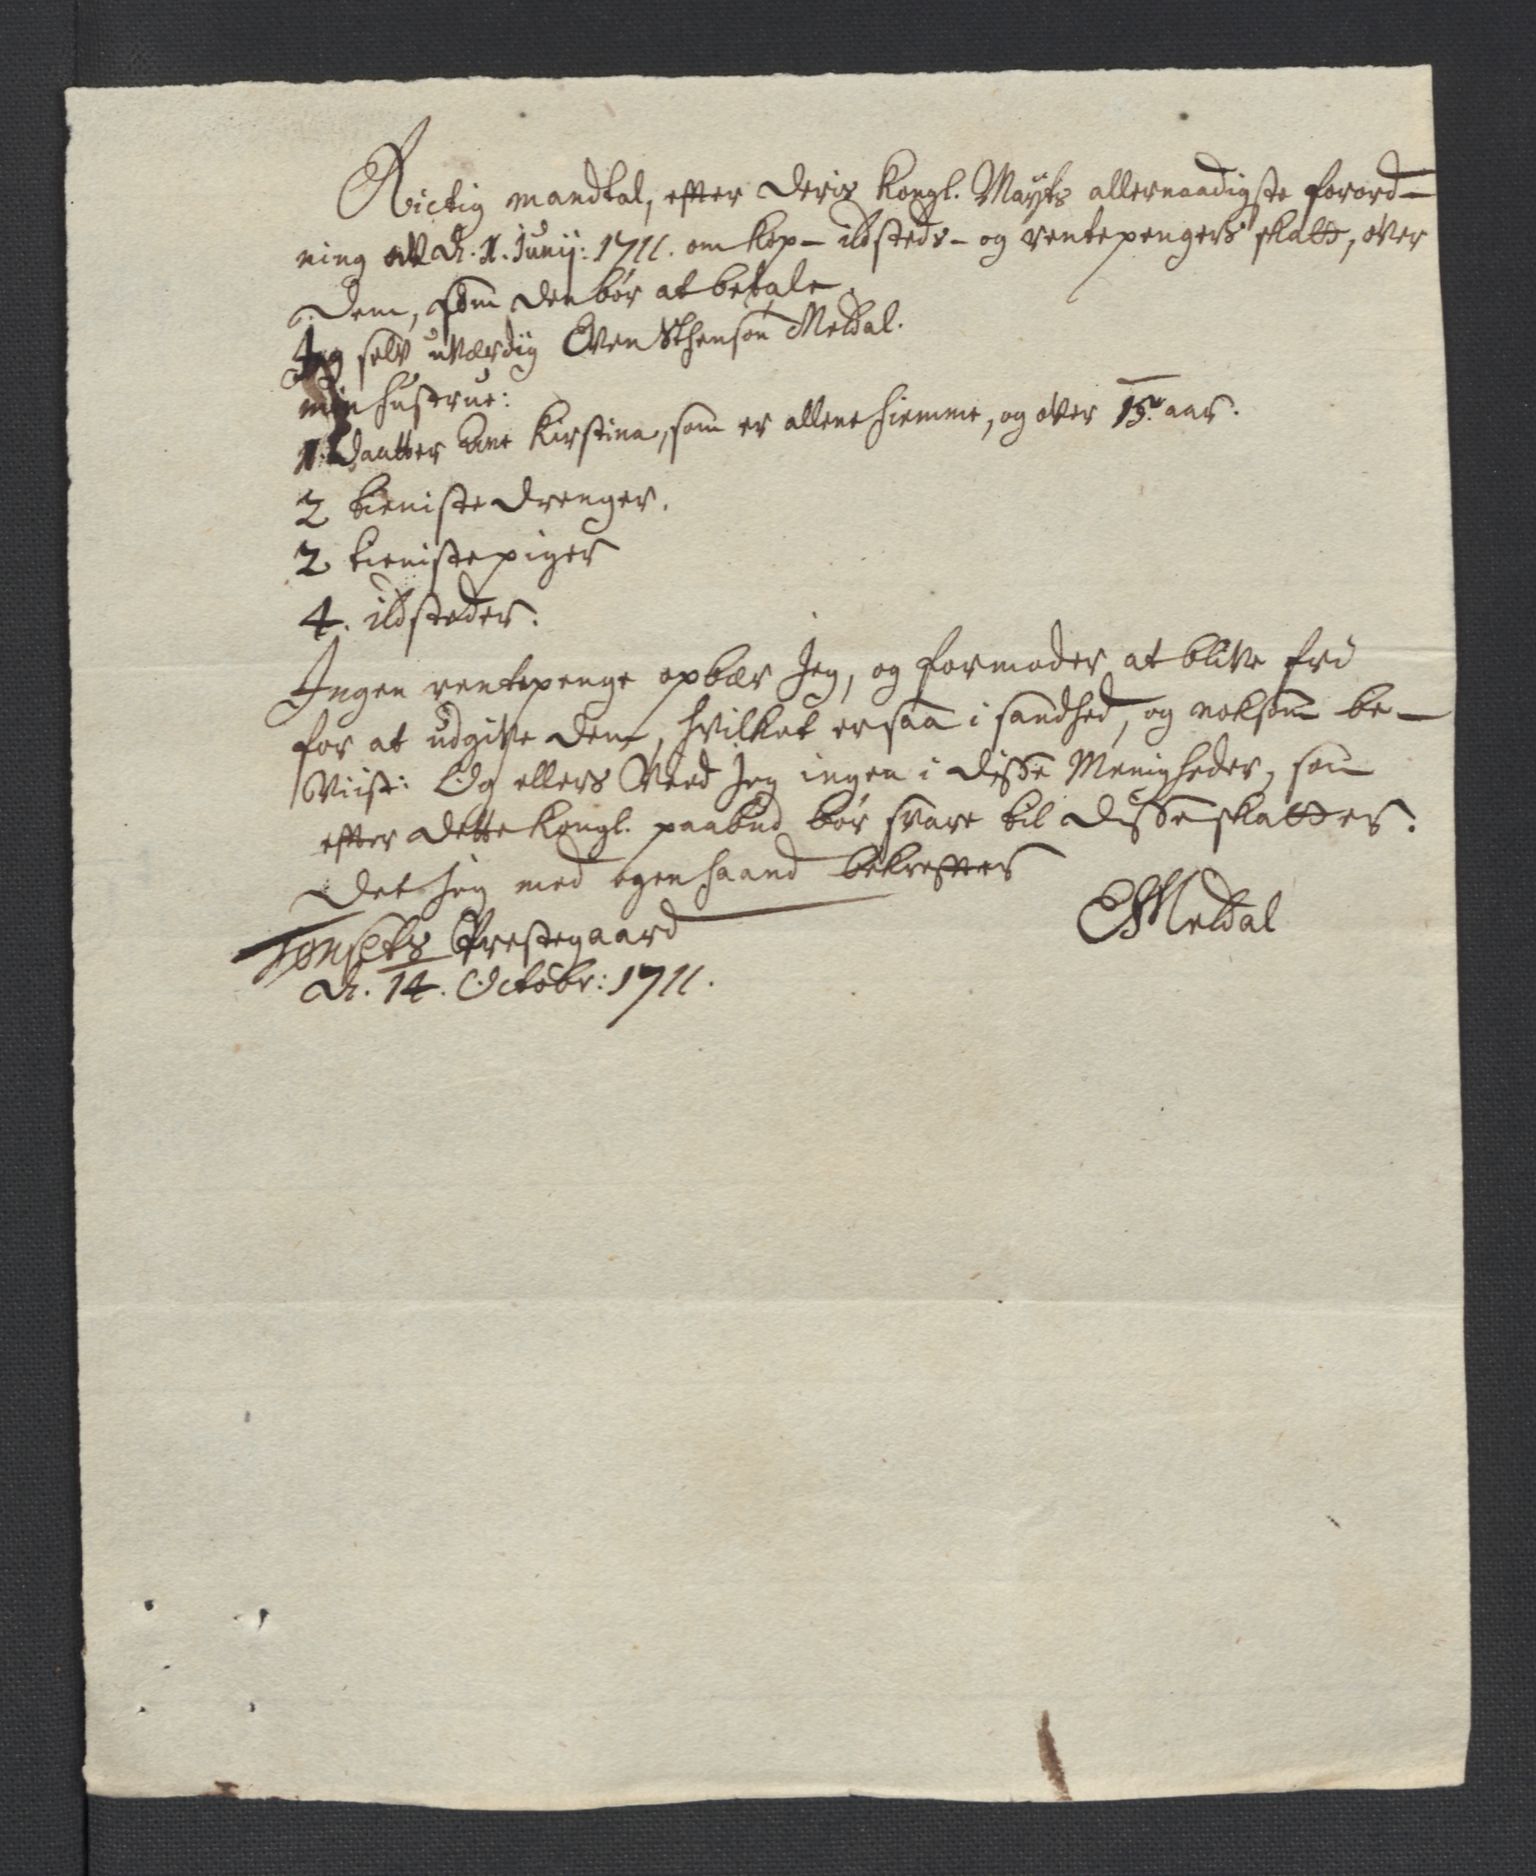 Rictig mandtal, efter deris Kongl. Mayts allernaadigste forord-
ning av d. 1. Junij: 1711. om kop- ildsteds- og rentepengers skatt, over
dem, som den bør at betale.
Jeg selv uværdig Even Sthensøn Meldal.
min hustrue:
1. daatter Ane Kirstina, som er allene hiemme, og over 15. aar.
2 tieniste drenger.
2. tienistepiger
4. ildsteder.
Ingen rentepenge opbær Jeg, og formoder at blive fri
for at udgive dem, hvilket er saa i sandhed, og noksom be-
viist: Og ellers veed Jeg ingen i disse Menigheder, som
efter dette Kongl. paabud bør svare til disse skatter.
Det Jeg med egen haand bekrefter
Tønsets Prestegaard
d. 14. Octobr: 1711.
EMeldal